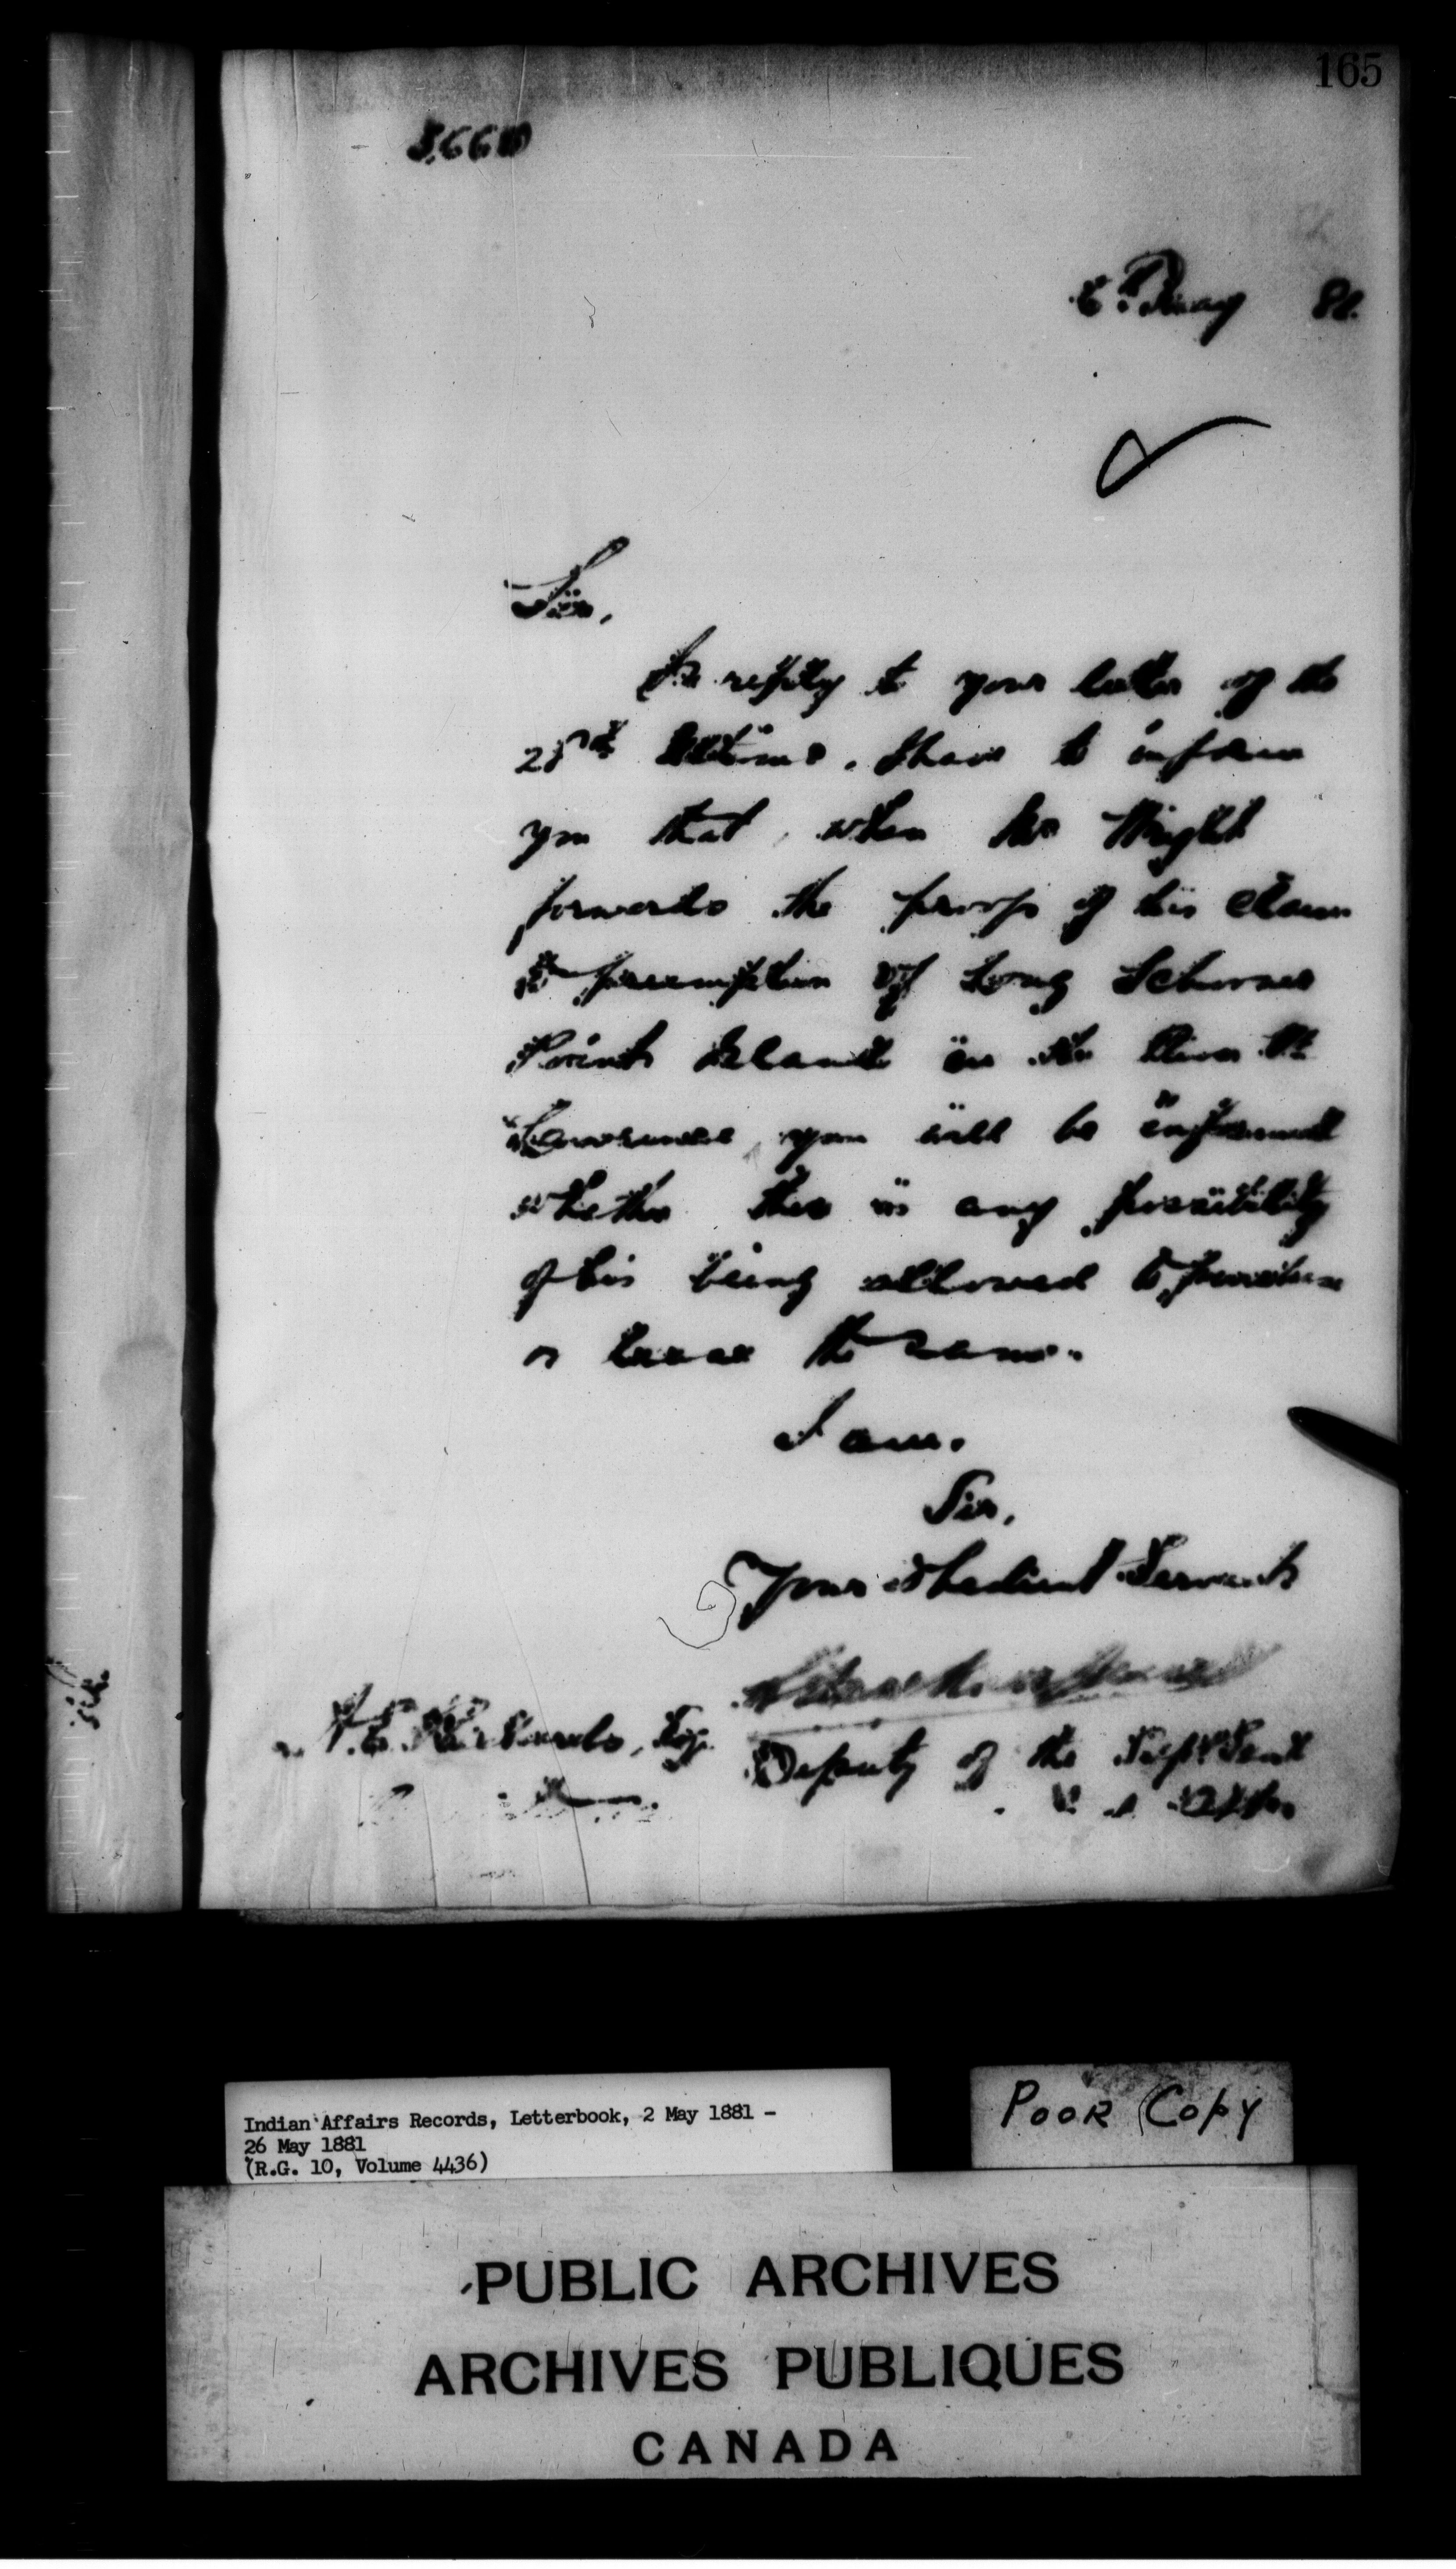 165
6th May 81.
Sir,
In reply to your letter of the
23rd Ultimo. I have to inform
you that, when Mr Wright
forwards the proofs of his claim
to preemption of Long Schooner
Point Island in the River St
Lawrence, you will be informed
whether there is any possibility
of his being allowed to purchase
or lease the same.
I am.
Sir,
Your obedient Servant
Esq.
Deputy of the Supt Genl
Indian Affairs Records, Letterbook, 2 May 1881 -
26 May 1881
(R.G. 10, Volume 4436)
POOR COPY
PUBLIC ARCHIVES
ARCHIVES PUBLIQUES
CANADA